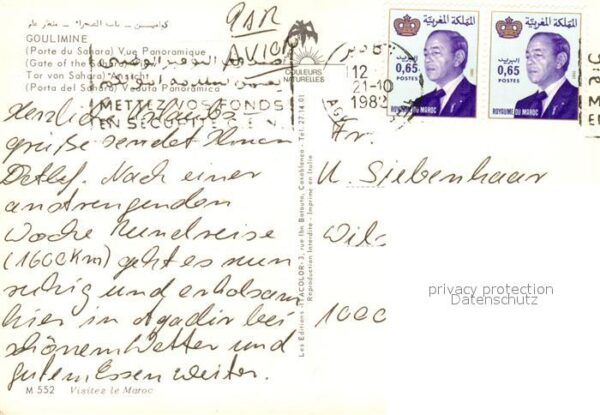 كوليمين – باب الصحراء – منظر عام
GOULIMINE
(Porte du Sahara) Vue Panoramique
(Gate of the Sa
Tor van Sahara) Ansicht
(Porta del Sahara) Veduta Panoramica
PAR
AVION
COULEURS
NATURELLES
METTEZ VOS FONDS
EN SECURITE
12
21-10
1982
المملكة المغربية
البريد
0,65
POSTES
ROYAUME DU MAROC
المملكة المغربية
البريد
0,65
POSTES
ROYAUME DU MAROC
Herzliche Urlaubs
grüße sendet Ihnen
Detlef. Nach einer
anstrengenden
Woche Rundreise
(1600 Km) geht es nun
ruhig und erholsam
hier in Agadir bei
schönem Wetter und
gutem Essen weiter.
Fr.
U. Siebenhaar
Wils
1000
privacy protection
Datenschutz
Les Editions ITACOLOR-3, rue Ibn Batouta, Casablanca - Tel. 27.14.01
Reproduction Interdite - Imprimé en Italie
M 552 Visitez le Maroc